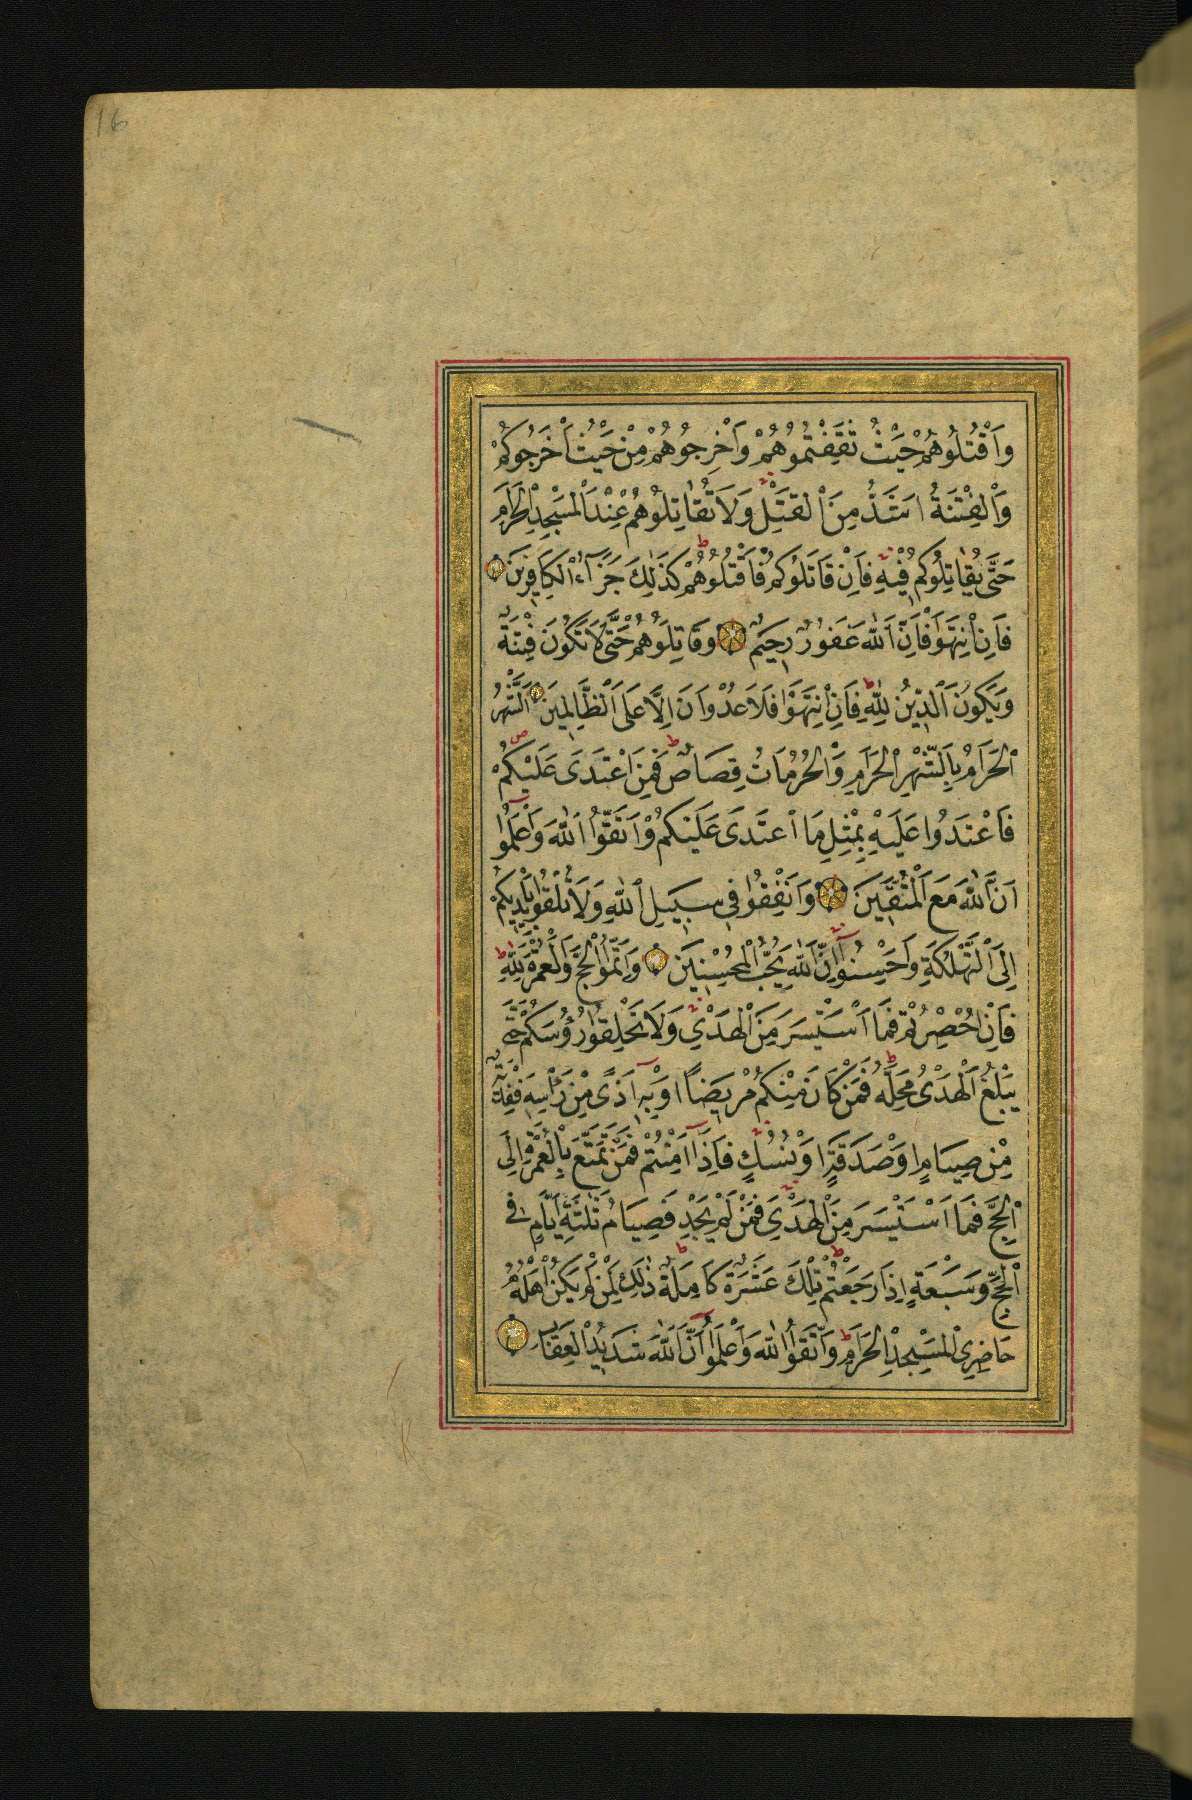 16
وَاقْتُلُوهُمْ حَيْثُ ثَقِفْتُمُوهُمْ وَاَخْرِجُوهُمْ مِنْ حَيْثُ اَخْرَجُوكُمْ
وَالْفِتْنَةُ اَشَدُّ مِنَ الْقَتْلِ وَلَا تُقَاتِلُوهُمْ عِنْدَ الْمَسْجِدِ الْحَرَامِ
حَتّٰى يُقَاتِلُوكُمْ فِيهِ فَاِنْ قَاتَلُوكُمْ فَاقْتُلُوهُمْ كَذٰلِكَ جَزَآءُ الْكَافِرِينَ
فَاِنِ انْتَهَوْا فَاِنَّ اللّٰهَ غَفُورٌ رَحِيمٌ وَقَاتِلُوهُمْ حَتّٰى لَا تَكُونَ فِتْنَةٌ
وَيَكُونَ الدِّينُ لِلّٰهِ فَاِنِ انْتَهَوْا فَلَا عُدْوَانَ اِلَّا عَلَى الظَّالِمِينَ اَلشَّهْرُ
الْحَرَامُ بِالشَّهْرِ الْحَرَامِ وَالْحُرُمَاتُ قِصَاصٌ فَمَنِ اعْتَدَى عَلَيْكُمْ
فَاعْتَدُوا عَلَيْهِ بِمِثْلِ مَا اعْتَدَى عَلَيْكُمْ وَاتَّقُوا اللّٰهَ وَاعْلَمُوا
اَنَّ اللّٰهَ مَعَ الْمُتَّقِينَ وَاَنْفِقُوا فِي سَبِيلِ اللّٰهِ وَلَا تُلْقُوا بِاَيْدِيكُمْ
اِلَى التَّهْلُكَةِ وَاَحْسِنُوا اِنَّ اللّٰهَ يُحِبُّ الْمُحْسِنِينَ وَاَتِمُّوا الْحَجَّ وَالْعُمْرَةَ لِلّٰهِ
فَاِنْ اُحْصِرْتُمْ فَمَا اسْتَيْسَرَ مِنَ الْهَدْيِ وَلَا تَحْلِقُوا رُؤُسَكُمْ حَتّٰى
يَبْلُغَ الْهَدْىُ مَحِلَّهُ فَمَنْ كَانَ مِنْكُمْ مَرِيضًا اَوْ بِهِ اَذًى مِنْ رَاْسِهِ فَفِدْيَةٌ
مِنْ صِيَامٍ اَوْ صَدَقَةٍ اَوْ نُسُكٍ فَاِذَا اَمِنْتُمْ فَمَنْ تَمَتَّعَ بِالْعُمْرَةِ اِلَى
الْحَجِّ فَمَا اسْتَيْسَرَ مِنَ الْهَدْيِ فَمَنْ لَمْ يَجِدْ فَصِيَامُ ثَلٰثَةِ اَيَّامٍ فِي
الْحَجِّ وَسَبْعَةٍ اِذَا رَجَعْتُمْ تِلْكَ عَشَرَةٌ كَامِلَةٌ ذٰلِكَ لِمَنْ لَمْ يَكُنْ اَهْلُهُ
حَاضِرِى الْمَسْجِدِ الْحَرَامِ وَاتَّقُوا اللّٰهَ وَاعْلَمُوا اَنَّ اللّٰهَ شَدِيدُ الْعِقَابِ